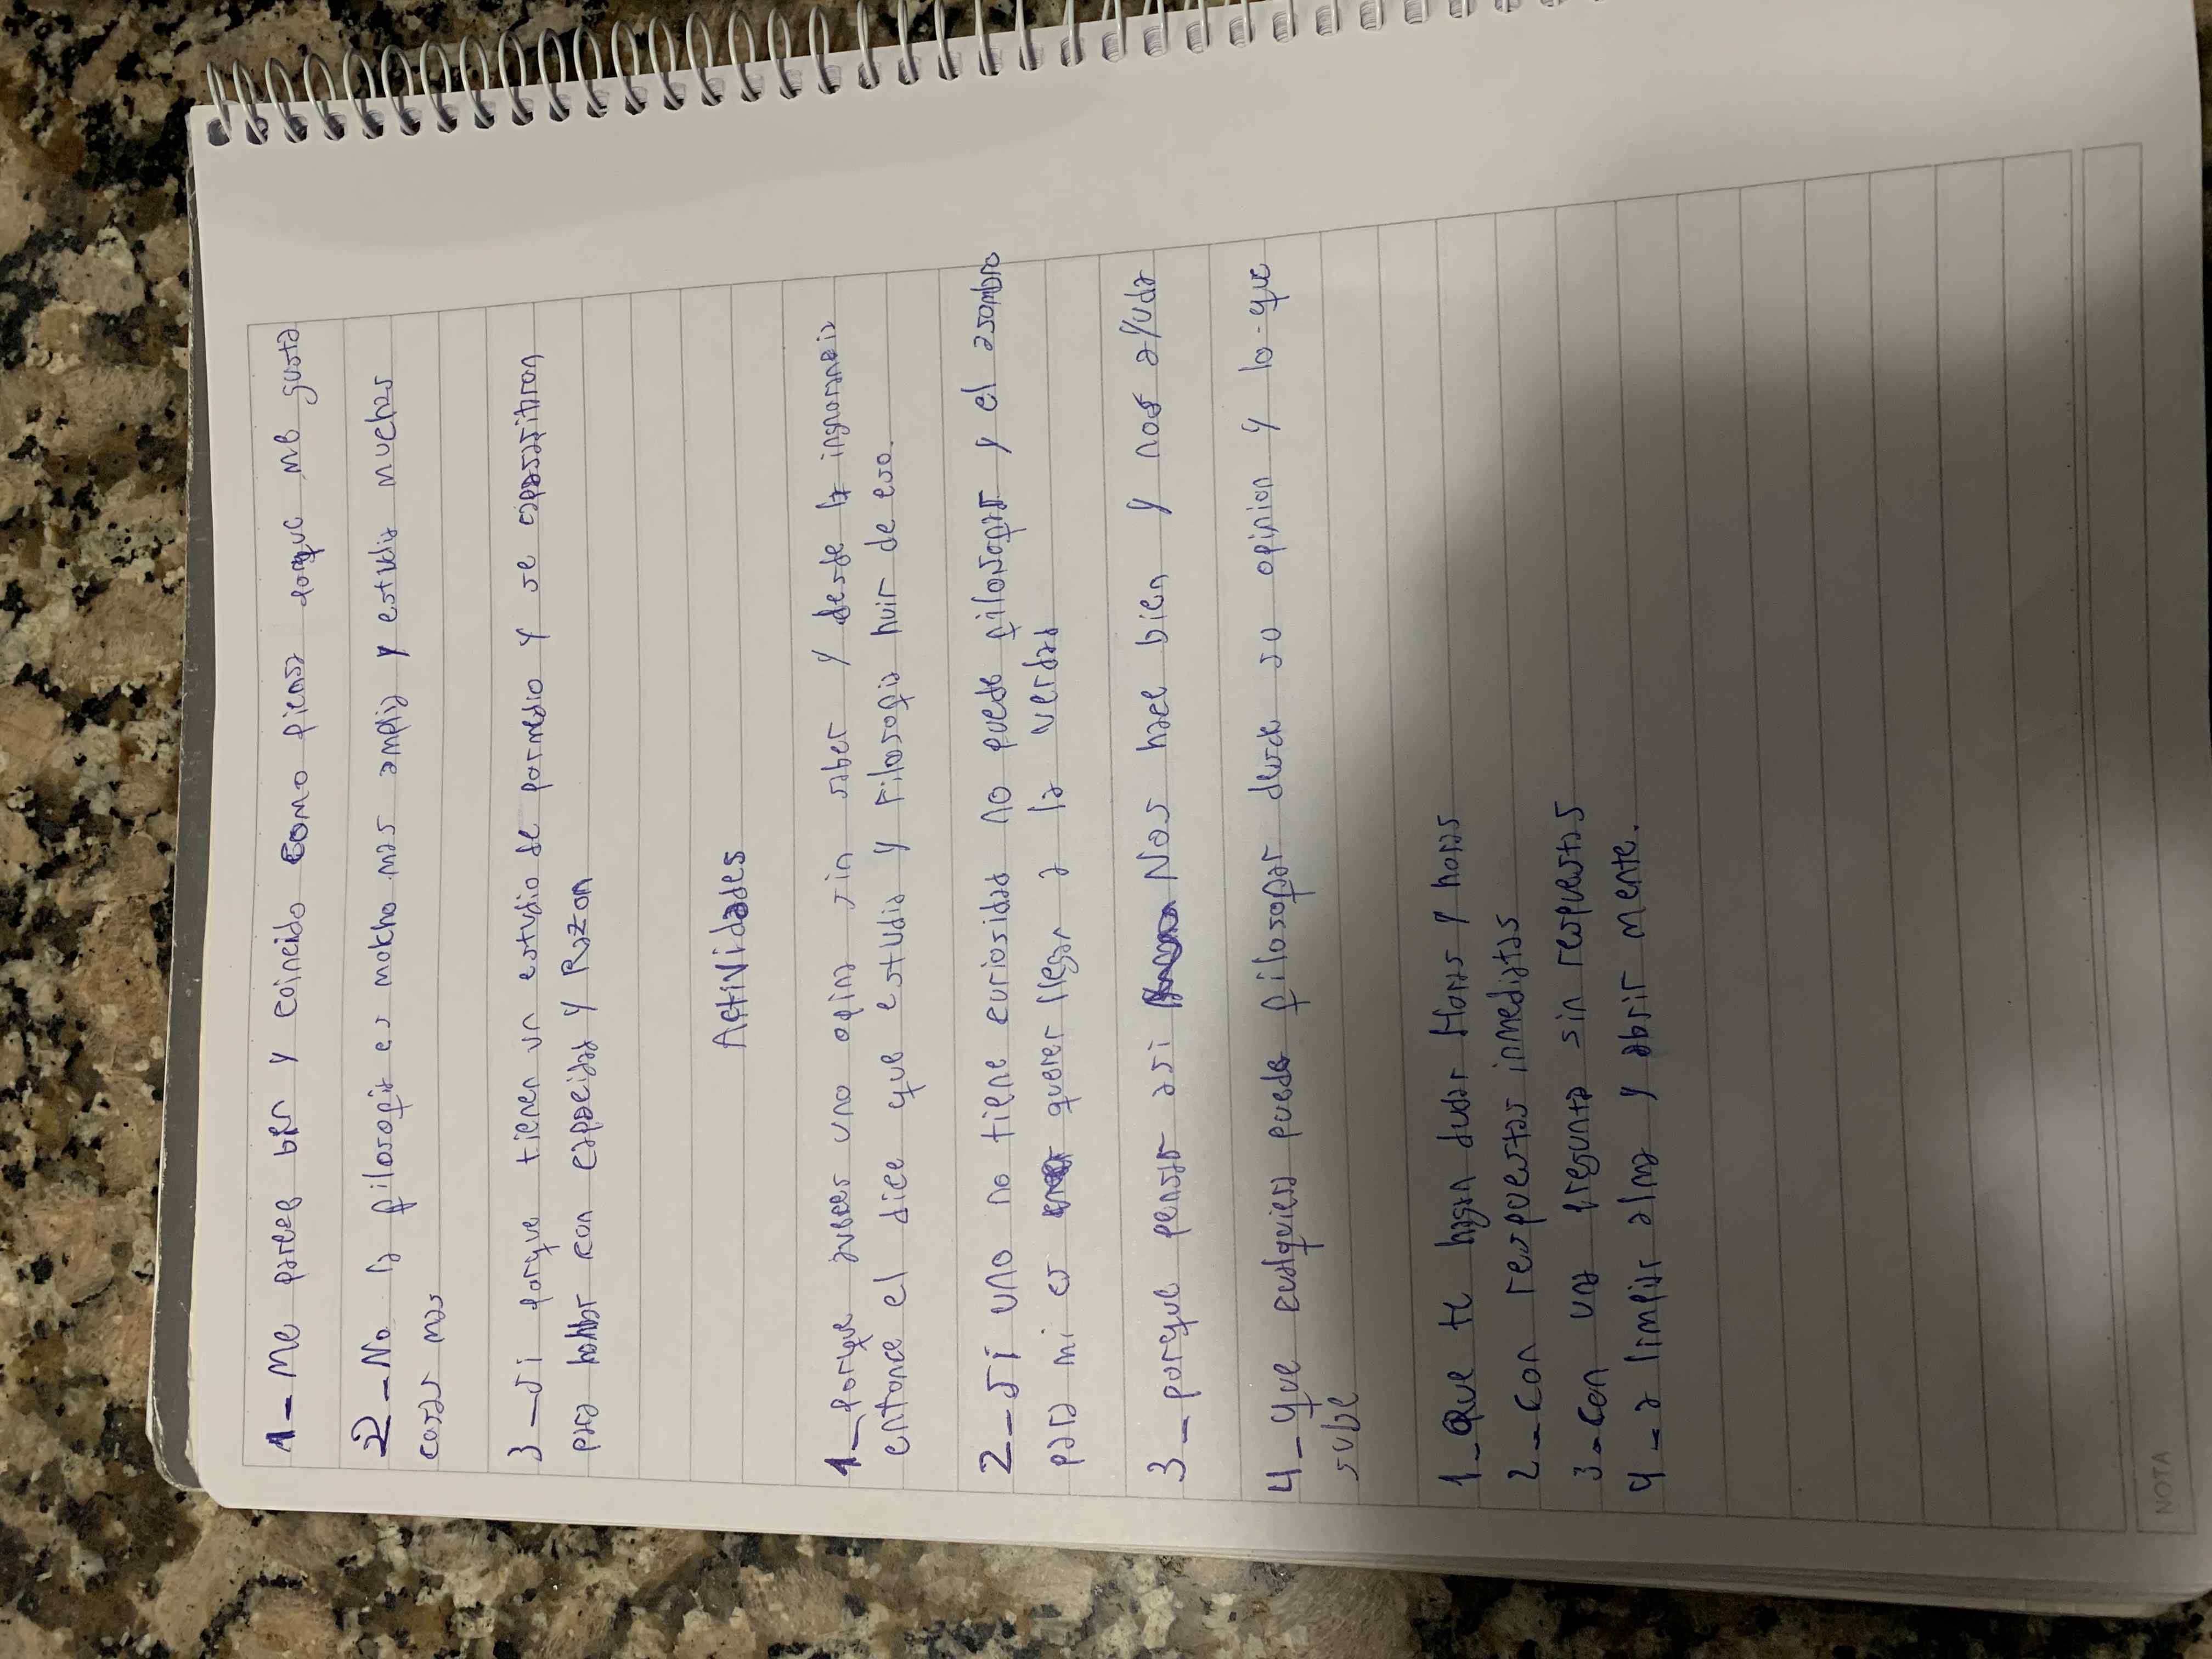 1-Me parece bn y coincido como piensa porque me gusta
2-No la filosofia es motcho mas amplia y estudia muchas
cosas mas
3-si porque tienen un estudio de pormedio y se
para hablar con capacidad y Razon
Actividades
1-porque aveces uno opina sin saber y desde la ingnorancia
entonce el dice que estudia y Filosofia huir de eso.
2-si uno no tiene curiosidad no puede filosofar y el asombro
para mi es querer llegar a la verdad
3-porque pensar asi Nos hace bien y nos ayuda
4-que cualquiera puede filosofar desde su opinion y lo-que
sabe
1-Que te hagan dudar Horas y horas
2-con respuestas inmediatas
3-con una pregunta sin respuestas
4-a limpiar alma y abrir mente.
NOTA